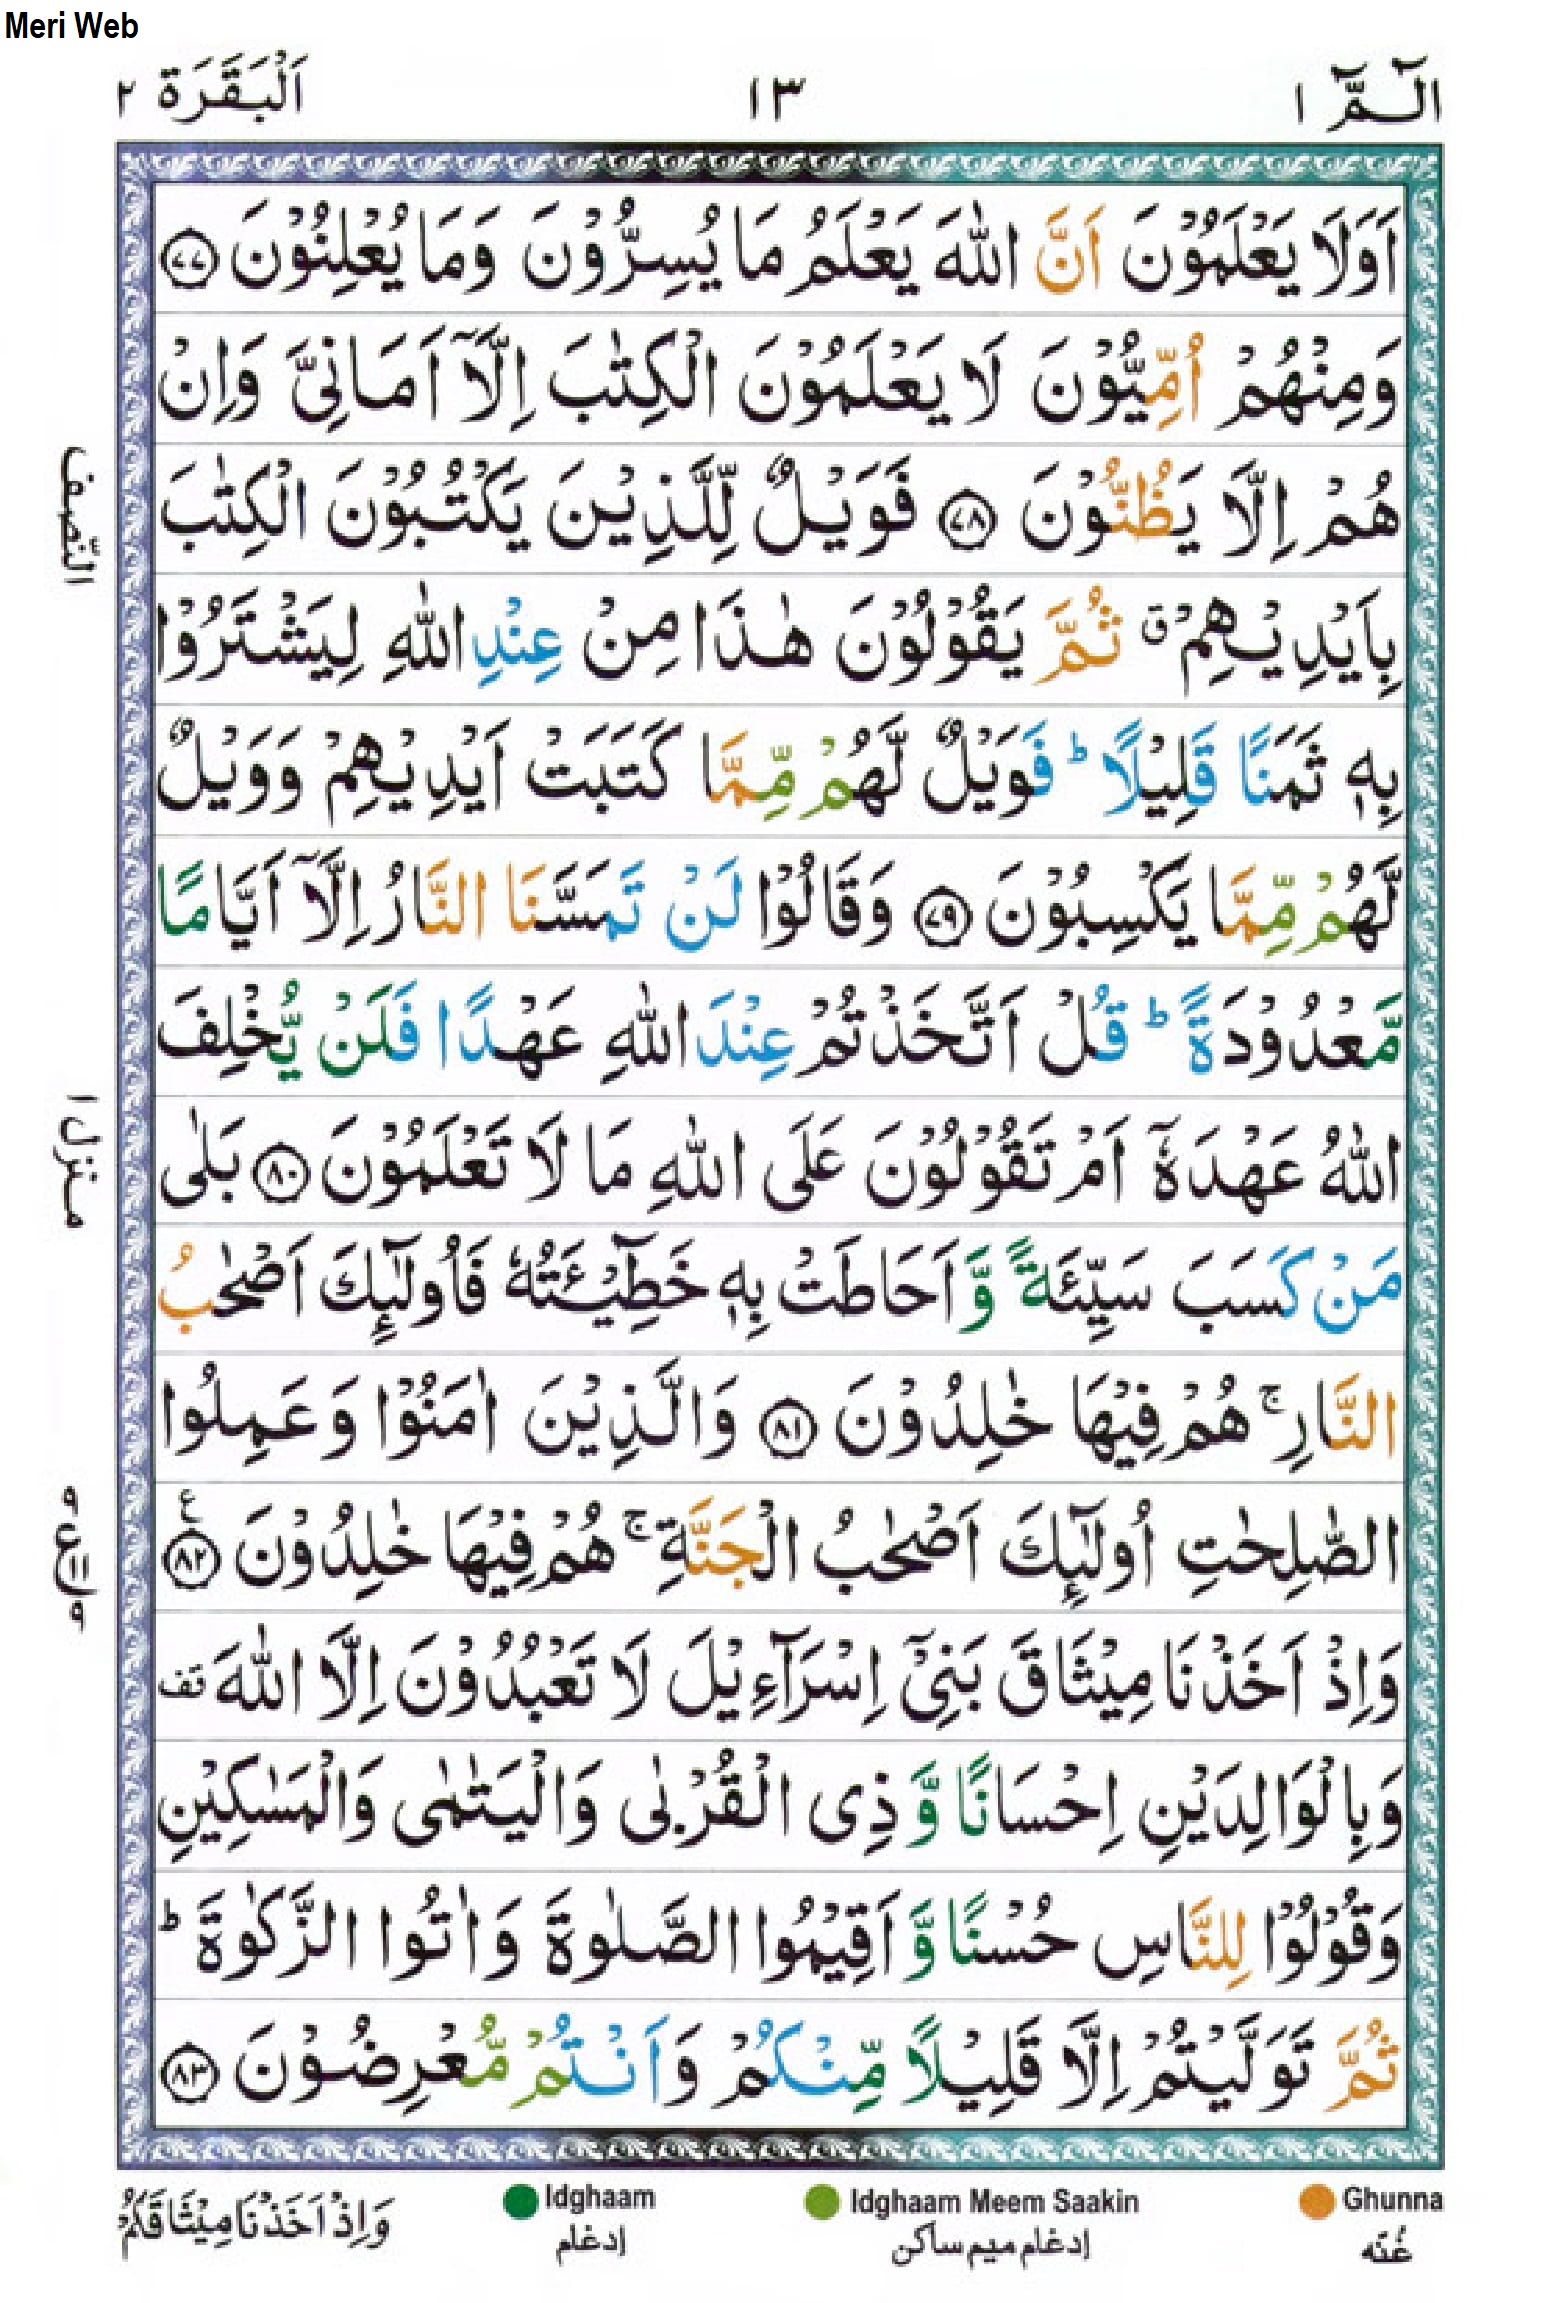 Meri Web
الٓـمّٓ ١ ١٣ اَلْبَقَرَة ٢
اَوَلَا يَعْلَمُوْنَ اَنَّ اللّٰهَ يَعْلَمُ مَا يُسِرُّوْنَ وَمَا يُعْلِنُوْنَ ﴿٧٧﴾
وَمِنْهُمْ اُمِّيُّوْنَ لَا يَعْلَمُوْنَ الْكِتٰبَ اِلَّآ اَمَانِىَّ وَاِنْ
هُمْ اِلَّا يَظُنُّوْنَ ﴿٧٨﴾ فَوَيْلٌ لِّلَّذِيْنَ يَكْتُبُوْنَ الْكِتٰبَ
بِاَيْدِيْهِمْ ق ثُمَّ يَقُوْلُوْنَ هٰذَا مِنْ عِنْدِ اللّٰهِ لِيَشْتَرُوْا
بِهٖ ثَمَنًا قَلِيْلًا ؕ فَوَيْلٌ لَّهُمْ مِّمَّا كَتَبَتْ اَيْدِيْهِمْ وَوَيْلٌ
لَّهُمْ مِّمَّا يَكْسِبُوْنَ ﴿٧٩﴾ وَقَالُوْا لَنْ تَمَسَّنَا النَّارُ اِلَّآ اَيَّامًا
مَّعْدُوْدَةً ؕ قُلْ اَتَّخَذْتُمْ عِنْدَ اللّٰهِ عَهْدًا فَلَنْ يُّخْلِفَ
اللّٰهُ عَهْدَهٗٓ اَمْ تَقُوْلُوْنَ عَلَى اللّٰهِ مَا لَا تَعْلَمُوْنَ ﴿٨٠﴾ بَلٰى
مَنْ كَسَبَ سَيِّئَةً وَّ اَحَاطَتْ بِهٖ خَطِيْٓـئَتُهٗ فَاُولٰٓئِكَ اَصْحٰبُ
النَّارِ ۚ هُمْ فِيْهَا خٰلِدُوْنَ ﴿٨١﴾ وَالَّذِيْنَ اٰمَنُوْا وَعَمِلُوا
الصّٰلِحٰتِ اُولٰٓئِكَ اَصْحٰبُ الْجَنَّةِ ۚ هُمْ فِيْهَا خٰلِدُوْنَ ﴿٨٢﴾ ع
وَاِذْ اَخَذْنَا مِيْثَاقَ بَنِىْٓ اِسْرَآءِيْلَ لَا تَعْبُدُوْنَ اِلَّا اللّٰهَ قف
وَبِالْوَالِدَيْنِ اِحْسَانًا وَّ ذِى الْقُرْبٰى وَالْيَتٰمٰى وَالْمَسٰكِيْنِ
وَقُوْلُوْا لِلنَّاسِ حُسْنًا وَّ اَقِيْمُوا الصَّلٰوةَ وَاٰتُوا الزَّكٰوةَ ؕ
ثُمَّ تَوَلَّيْتُمْ اِلَّا قَلِيْلًا مِّنْكُمْ وَاَنْتُمْ مُّعْرِضُوْنَ ﴿٨٣﴾
النّصف
منزل ١
Ghunna Idghaam Meem Saakin Idghaam
غُنّه إدغام ميم ساكن إدغام
وَاِذْ اَخَذْنَا مِيْثَاقَكُمْ